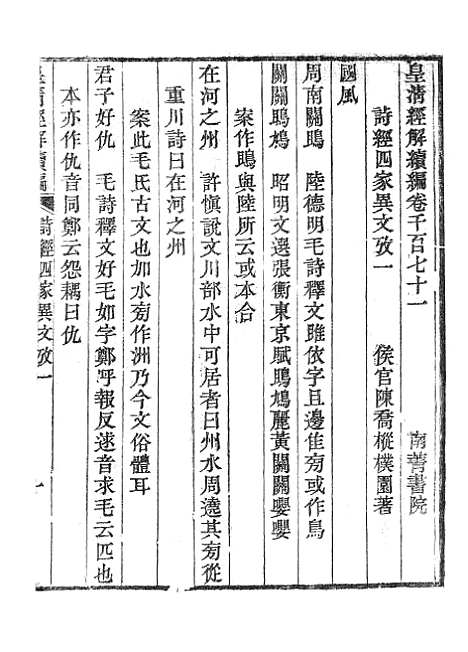 皇清經解續編卷千百七十一　南菁書院
詩經四家異文攷一　侯官陳喬樅樸園著
國風
周南關鴡　陸德明毛詩釋文雎依字且邊隹旁或作鳥
關關鴡鳩　昭明文選張衡東京賦鴡鳩麗黃關關嚶嚶
案作鴡與陸所云或本合
在河之州　許愼說文川部水中可居者曰州水周遶其旁從
重川詩曰在河之州
案此毛氏古文也加水旁作洲乃今文俗體耳
君子好仇　毛詩釋文好毛如字鄭呼報反逑音求毛云匹也
本亦作仇音同鄭云怨耦曰仇
皇清經解續編　詩經四家異文攷一　一